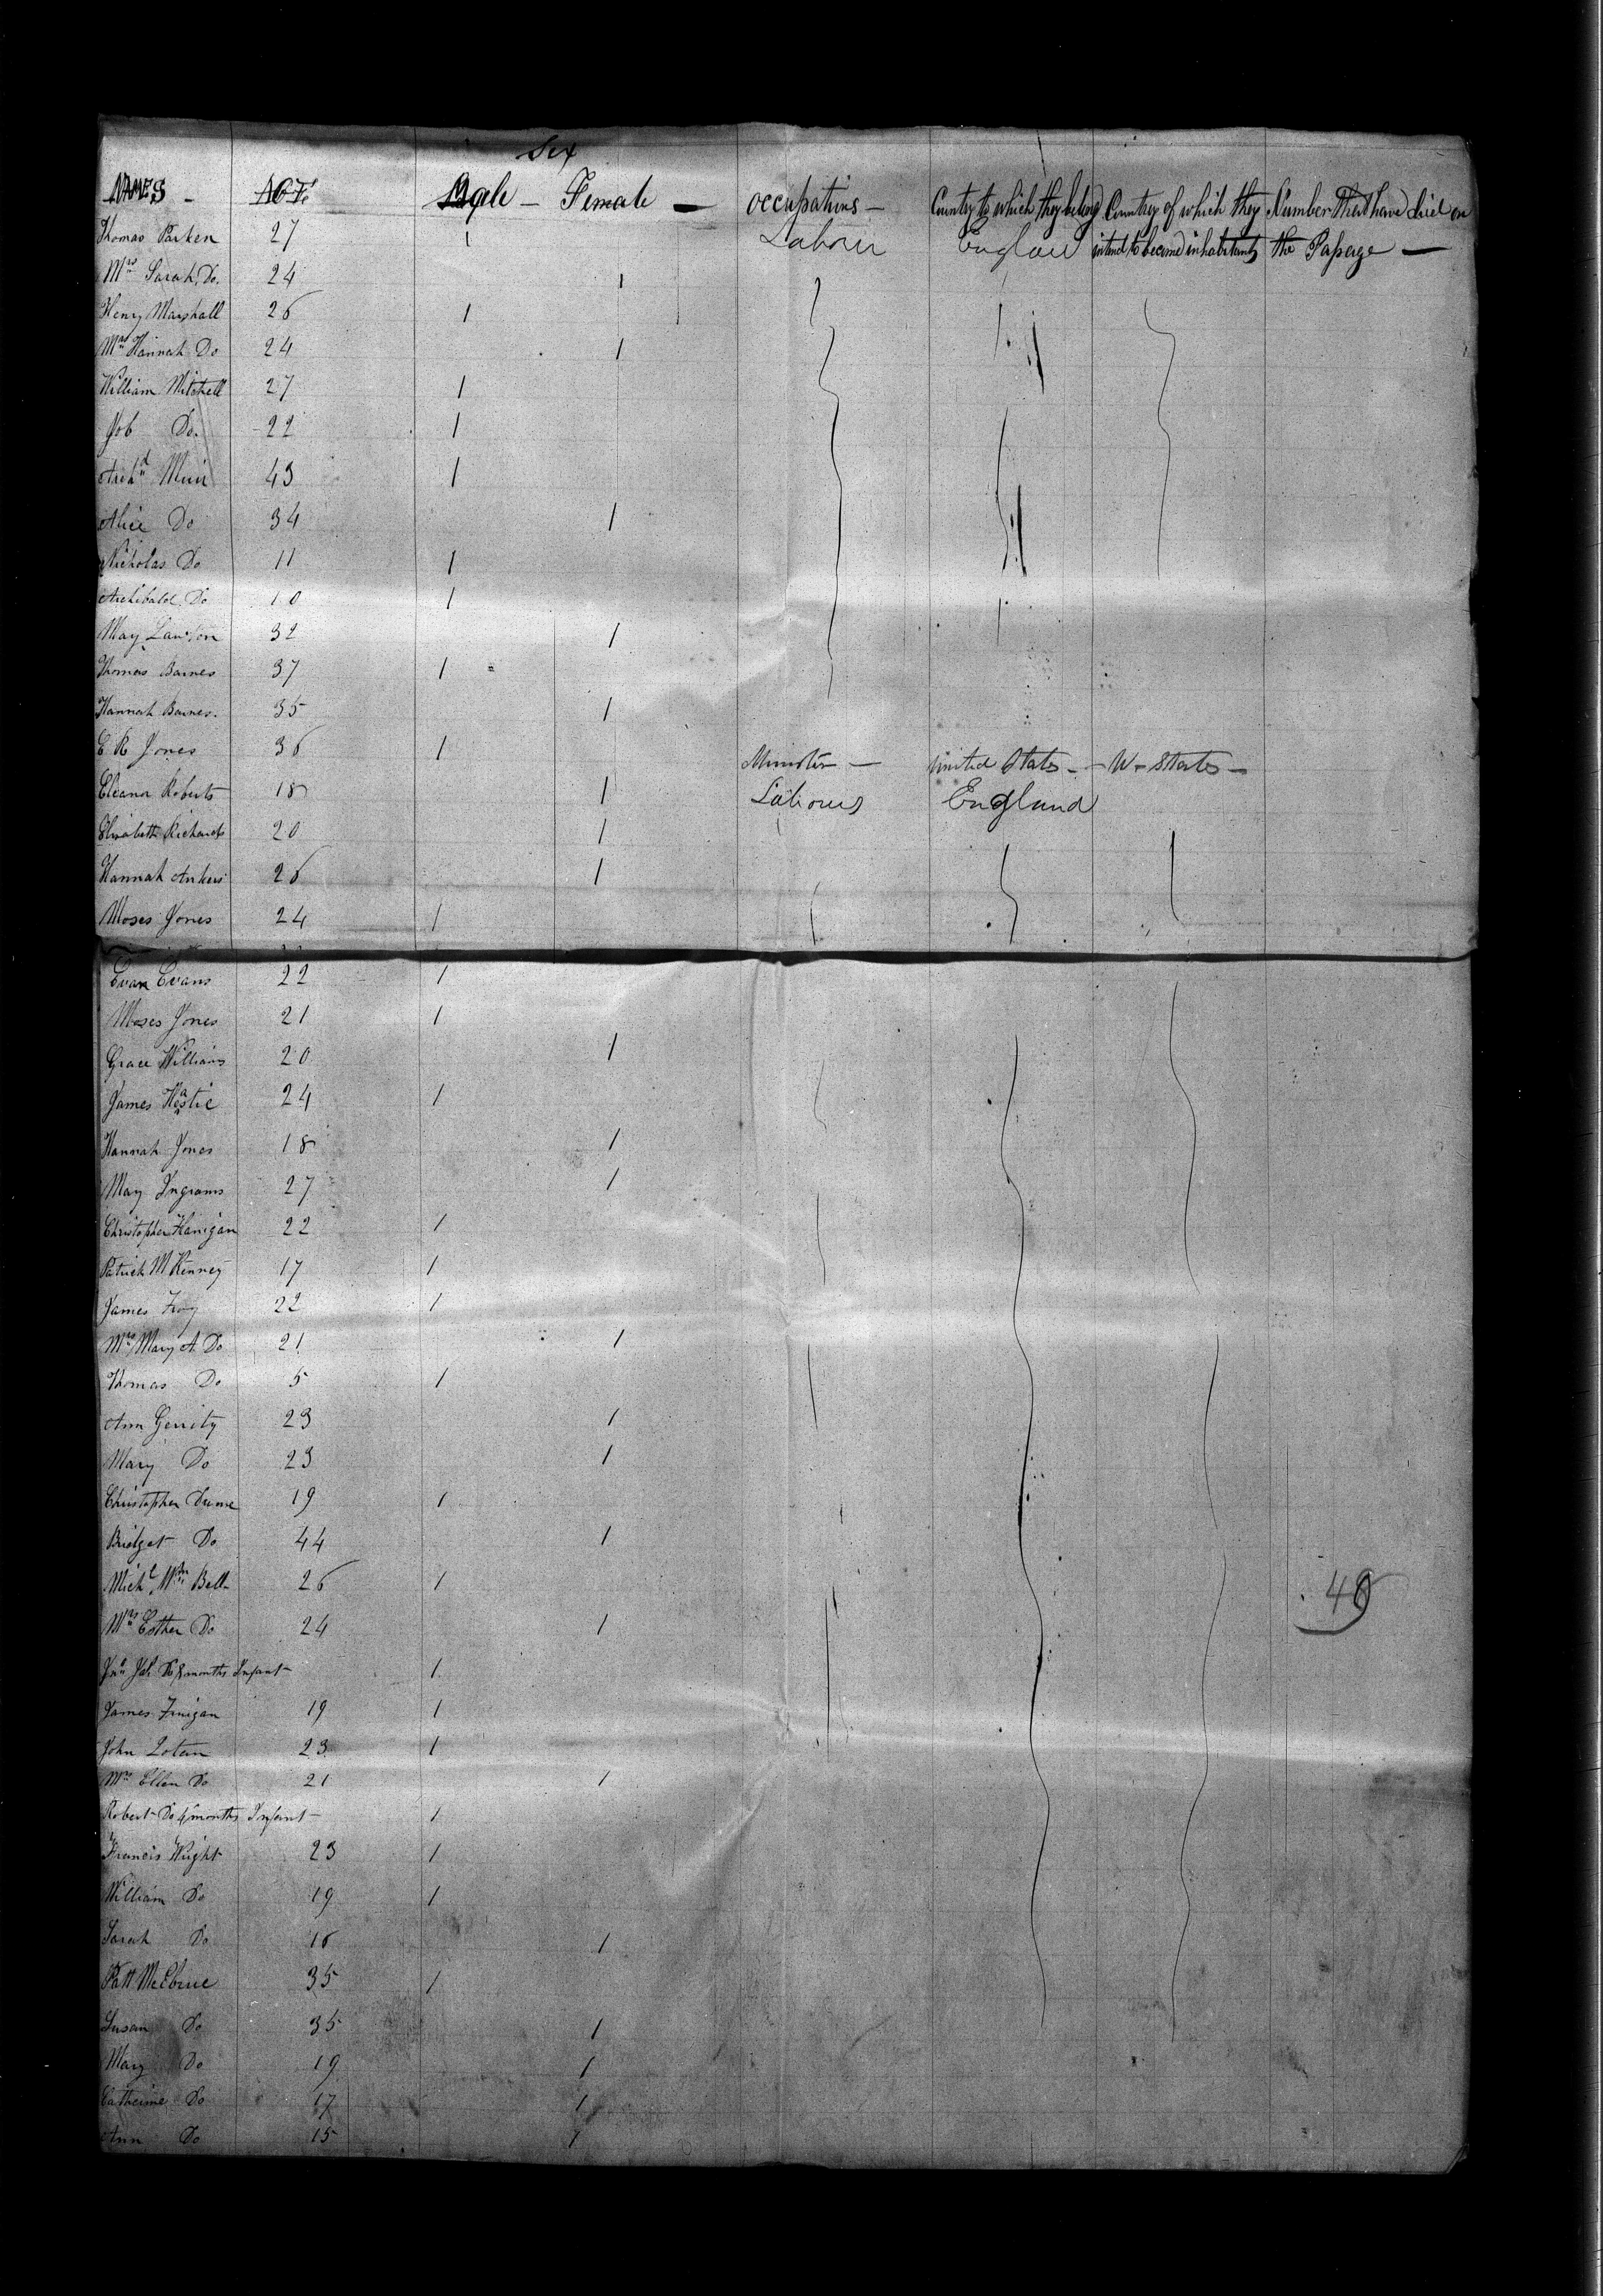 Sex
NAMES - AGE Male - Female - occupations - Country to which they belong Country of which they Number that have died on
Thomas Parken 27 1 Labour England intend to become inhabitants the Passage -
Mrs Sarah Do. 24 1
Henry Marshall 26 1
Mrs Hannah Do 24 1
William Mitchell 27 1
Job Do. 22 1
Archd Muir 43 1
Alice Do 34 1
Nicholas Do 11 1
Archibald Do 10 1
May Lawton 32 1
Thomas Barnes 37 1
Hannah Barnes. 35 1
E R Jones 36 1 Minister - United States - - U - States -
Eleanor Roberts 18 1 Labour England
Elizabeth Richards 20 1
Hannah Ankers 26 1
Moses Jones 24 1
Evan Evans 22 1
Moses Jones 21 1
Grace Williams 20 1
James Hastie 24 1
Hannah Jones 18 1
May Ingrams 27 1
Christopher Hanigan 22 1
Patrick McKenney 17 1
James 22 1
Mrs Mary A Do 21 1
Thomas Do 5 1
Ann Gerrity 23 1
Mary Do 23 1
Christopher Dunne 19 1
Bridget Do 44 1
Michl Bell 26 1 49
Mrs Esther Do 24 1
Do 8 months Infant 1
James Finigan 19 1
John Lotan 23 1
Mrs Ellen Do 21 1
Robert Do 4 months Infant - 1
Francis Wright 23 1
William Do 19 1
Sarah Do 16 1
Patt 35 1
Susan Do 35 1
Mary Do 19 1
Catherine Do 17 1
Ann Do 15 1